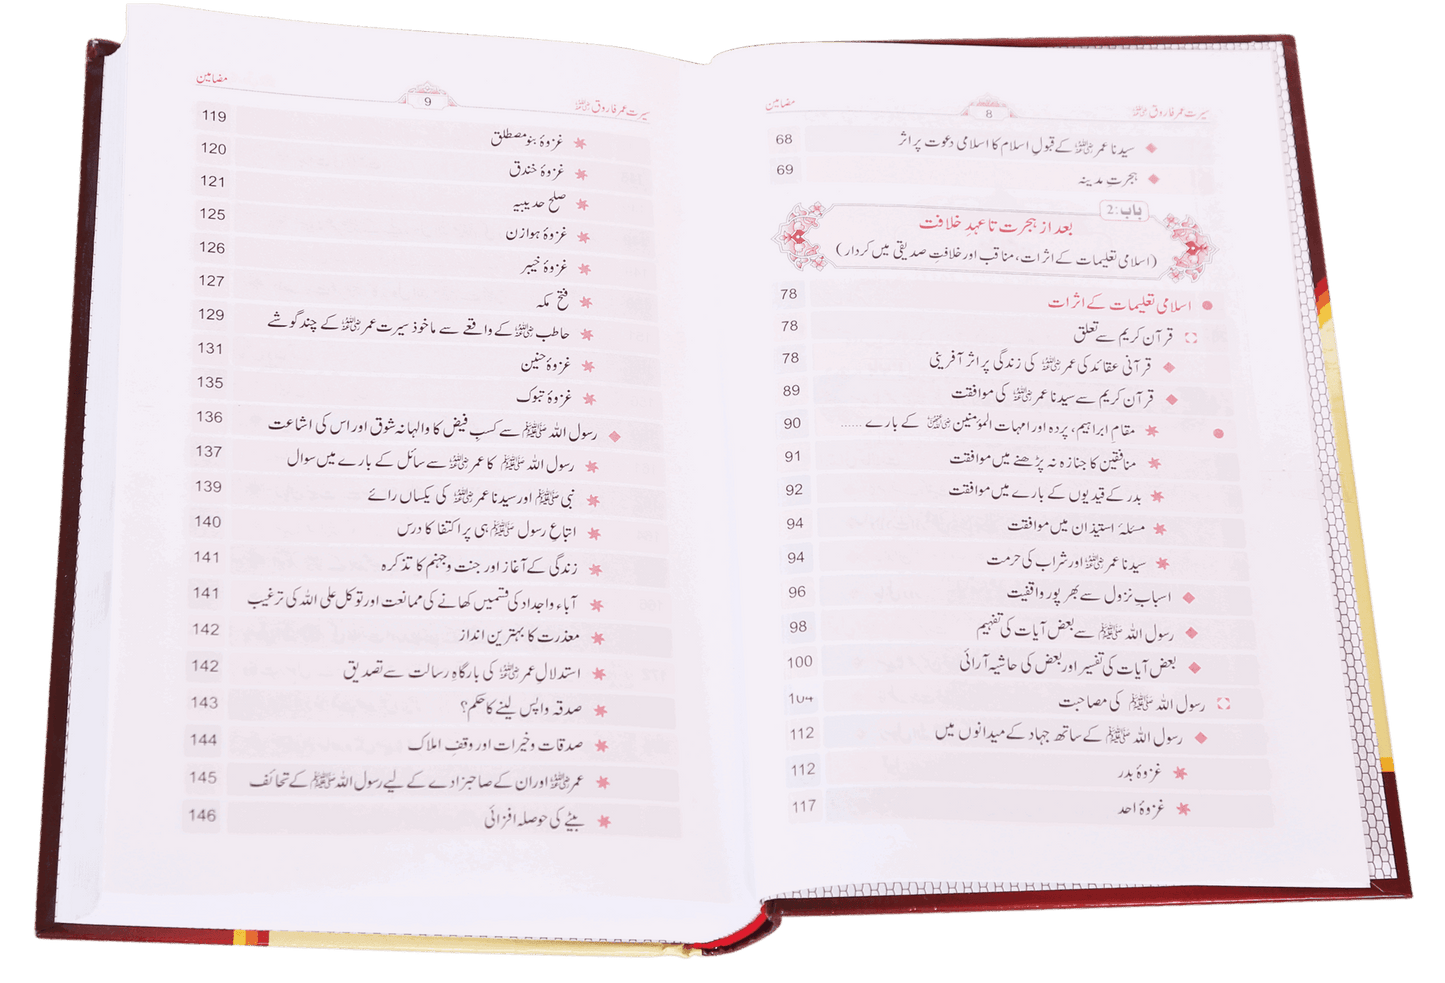 سیرت عمر فاروق ؓ 8 مضامین
سیدنا عمر ؓ کے قبولِ اسلام کا اسلامی دعوت پر اثر 68
ہجرتِ مدینہ 69
باب: 2
بعد از ہجرت تا عہدِ خلافت
(اسلامی تعلیمات کے اثرات، مناقب اور خلافت صدیقی میں کردار)
اسلامی تعلیمات کے اثرات 78
قرآن کریم سے تعلق 78
قرآنی عقائد کی عمر ؓ کی زندگی پر اثر آفرینی 78
قرآن کریم سے سیدنا عمر ؓ کی موافقت 89
مقامِ ابراہیم، پردہ اور امہات المؤمنین کے بارے ...... 90
منافقین کا جنازہ نہ پڑھنے میں موافقت 91
بدر کے قیدیوں کے بارے میں موافقت 92
مسئلۂ استیذان میں موافقت 94
سیدنا عمر ؓ اور شراب کی حرمت 94
اسبابِ نزول سے بھرپور واقفیت 96
رسول اللہ ﷺ سے بعض آیات کی تفہیم 98
بعض آیات کی تفسیر اور بعض کی حاشیہ آرائی 100
رسول اللہ ﷺ کی مصاحبت 104
رسول اللہ ﷺ کے ساتھ جہاد کے میدانوں میں 112
غزوۂ بدر 112
غزوۂ احد 117
سیرت عمر فاروق ؓ 9 مضامین
غزوۂ بنو مصطلق 119
غزوۂ خندق 120
صلح حدیبیہ 121
غزوۂ ہوازن 125
غزوۂ خیبر 126
فتح مکہ 127
حاطب ؓ کے واقعے سے ماخوذ سیرت عمر ؓ کے چند گوشے 129
غزوۂ حنین 131
غزوۂ تبوک 135
رسول اللہ ﷺ سے کسبِ فیض کا والہانہ شوق اور اس کی اشاعت 136
رسول اللہ ﷺ کا عمر ؓ سے سائل کے بارے میں سوال 137
نبی ﷺ اور سیدنا عمر ؓ کی یکساں رائے 139
اتباع رسول ﷺ ہی پر اکتفا کا درس 140
زندگی کے آغاز اور جنت و جہنم کا تذکرہ 141
آباء و اجداد کی قسمیں کھانے کی ممانعت اور توکل علی اللہ کی ترغیب 141
معذرت کا بہترین انداز 142
استدلالِ عمر ؓ کی بارگاہِ رسالت سے تصدیق 142
صدقہ واپس لینے کا حکم؟ 143
صدقات و خیرات اور وقفِ املاک 144
عمر ؓ اور ان کے صاحبزادے کے لیے رسول اللہ ﷺ کے تحائف 145
بیٹے کی حوصلہ افزائی 146